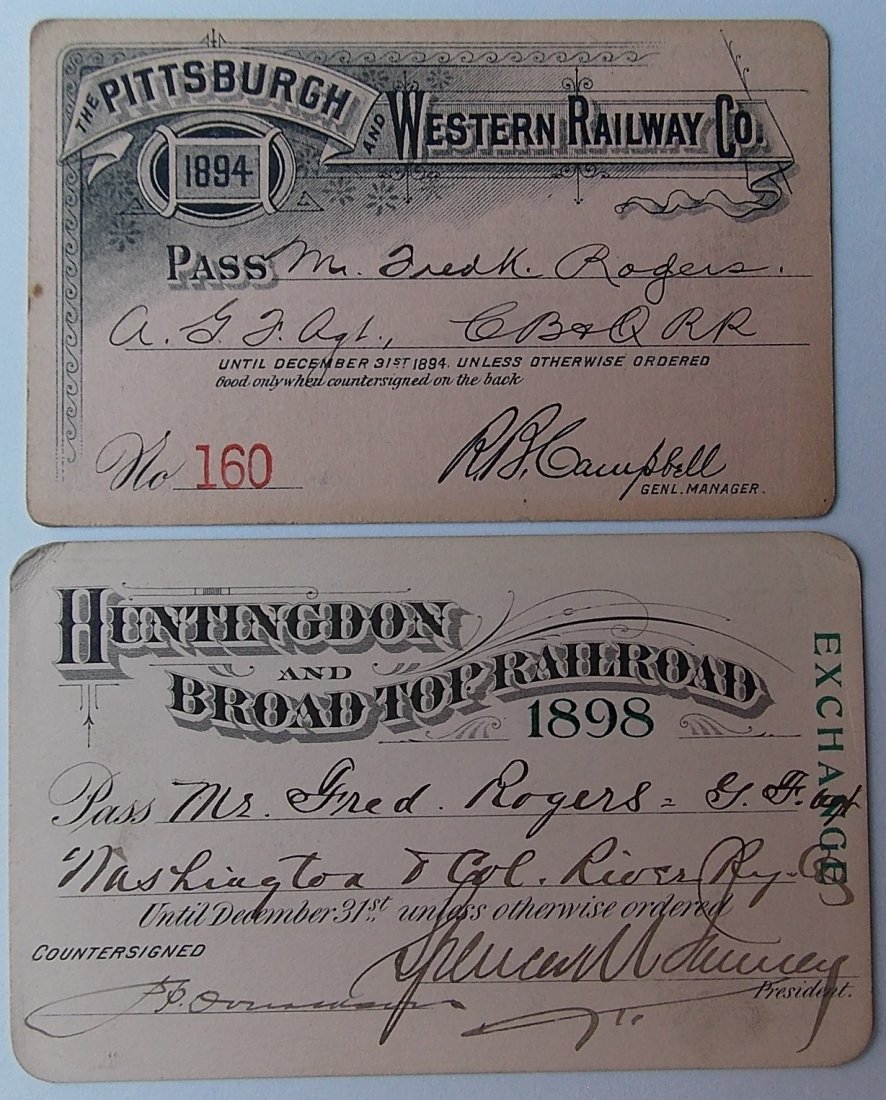 THE PITTSBURGH AND WESTERN RAILWAY CO.
1894
PASS Mr. Fred K. Rogers.
A. G. F. Agt., C B & Q RR
UNTIL DECEMBER 31ST 1894. UNLESS OTHERWISE ORDERED
Good only when countersigned on the back
No 160
R. B. Campbell
GENL. MANAGER.
HUNTINGDON
AND
BROAD TOP RAILROAD
1898
EXCHANGE
Pass Mr. Fred. Rogers = G. F. Agt
Washington & Col. River Ry. Co
Until December 31st unless otherwise ordered
COUNTERSIGNED
President.